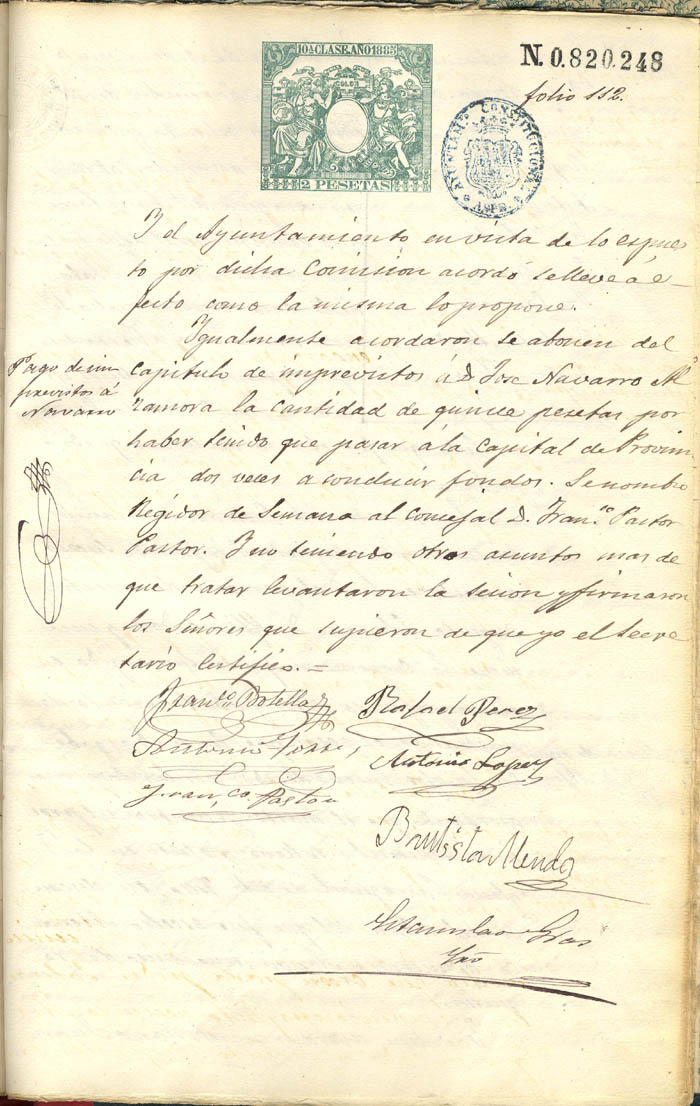 10ª CLASE. AÑO 1885
2 PESETAS
N. 0.820.248
folio 112.
AYUNTAMTO CONSTITUCIONAL
ASPE
Y el Ayuntamiento en vista de lo espues
to por dicha Comision acordó se lleve á e-
fecto como la misma lo propone.
Igualmente acordaron se abonen del
Pago de im
previstos á
Navarro
capitulo de imprevistos á D. Jose Navarro Mª
Zamora la cantidad de quince pesetas por
haber tenido que pasar á la capital de Provin
cia dos veces a conducir fondos. Se nombro
Regidor de Semana al concejal D. Franco Pastor
Pastor. Y no teniendo otros asuntos mas de
que tratar levantaron la sesion y firmaron
los Señores que supieron de que yo el Secre
tario Certifico. =
Franco Botella
Rafael Perez
Antonio
Antonio Lopez
Franco Pastor
Bautista
Estanislao Gras
Srio